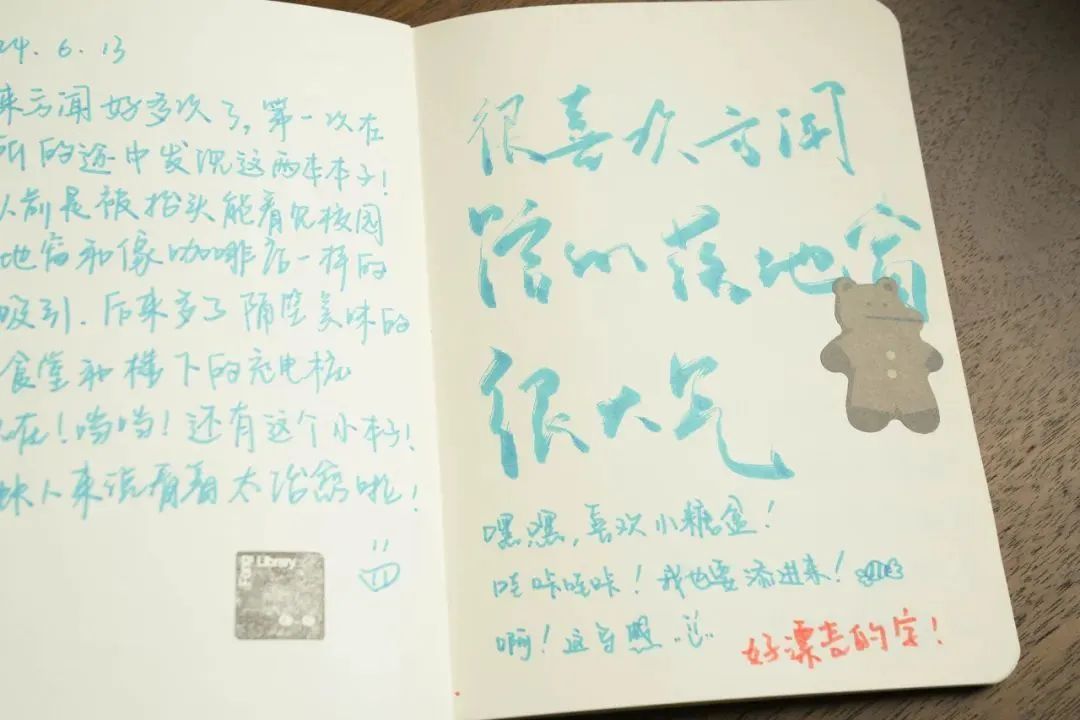 24.6.13
来方闻好多次了,第一次在
所的途中发现这两本本子!
以前是被抬头能看见校园
地窗和像咖啡店一样的
吸引.后来多了隔壁美味的
食堂和楼下的充电桩
现在!当当!还有这个小本子!
人来说看着太治愈啦!
Library
很喜欢方闻
馆的落地窗
很大气
嘿嘿,喜欢小糖盒!
哇咔哇咔!我也要添进来!
啊!这
好漂亮的字!